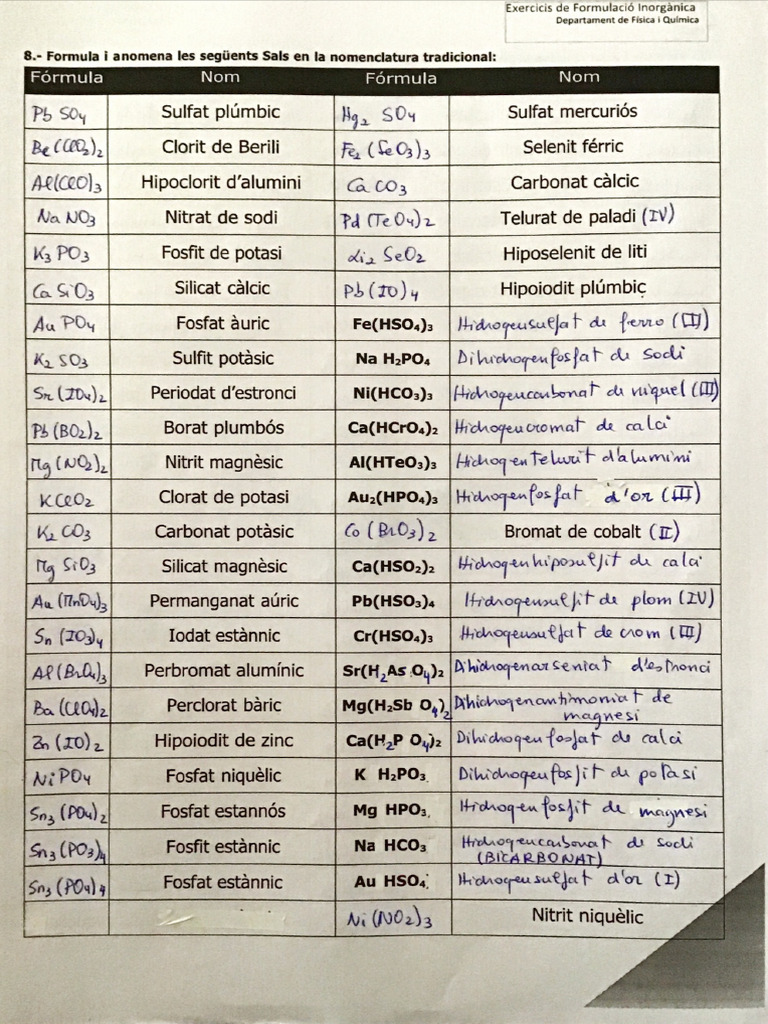 Exercicis de Formulació Inorgànica
Departament de Física i Química
8.- Formula i anomena les següents Sals en la nomenclatura tradicional:
Fórmula Nom Fórmula Nom
Pb SO4 Sulfat plúmbic Hg2 SO4 Sulfat mercuriós
Be(ClO2)2 Clorit de Berili Fe2(SeO3)3 Selenit férric
Al(ClO)3 Hipoclorit d'alumini CaCO3 Carbonat càlcic
NaNO3 Nitrat de sodi Pd(TeO4)2 Telurat de paladi (IV)
K3PO3 Fosfit de potasi Li2 SeO2 Hiposelenit de liti
CaSiO3 Silicat càlcic Pb(IO)4 Hipoiodit plúmbic
Au PO4 Fosfat àuric Fe(HSO4)3 Hidrogensulfat de ferro (III)
K2SO3 Sulfit potàsic Na H2PO4 Dihidrogenfosfat de sodi
Sr(IO4)2 Periodat d'estronci Ni(HCO3)3 Hidrogencarbonat de niquel (III)
Pb(BO2)2 Borat plumbós Ca(HCrO4)2 Hidrogencromat de calci
Mg(NO2)2 Nitrit magnèsic Al(HTeO3)3 Hidrogentelurit d'alumini
KClO2 Clorat de potasi Au2(HPO4)3 Hidrogenfosfat d'or (III)
K2CO3 Carbonat potàsic Co(BrO3)2 Bromat de cobalt (II)
MgSiO3 Silicat magnèsic Ca(HSO2)2 Hidrogenhiposulfit de calci
Au(MnO4)3 Permanganat aúric Pb(HSO3)4 Hidrogensulfit de plom (IV)
Sn(IO3)4 Iodat estànnic Cr(HSO4)3 Hidrogensulfat de crom (III)
Al(BrO4)3 Perbromat alumínic Sr(H2As O4)2 Dihidrogenarseniat d'estronci
Ba(ClO4)2 Perclorat bàric Mg(H2Sb O4)2 Dihidrogenantimoniat de
magnesi
Zn(IO)2 Hipoiodit de zinc Ca(H2P O4)2 Dihidrogenfosfat de calci
NiPO4 Fosfat niquèlic K H2PO3 Dihidrogenfosfit de potasi
Sn3(PO4)2 Fosfat estannós Mg HPO3 Hidrogenfosfit de magnesi
Sn3(PO3)4 Fosfit estànnic Na HCO3 Hidrogencarbonat de sodi
(BICARBONAT)
Sn3(PO4)4 Fosfat estànnic Au HSO4 Hidrogensulfat d'or (I)
Ni(NO2)3 Nitrit niquèlic